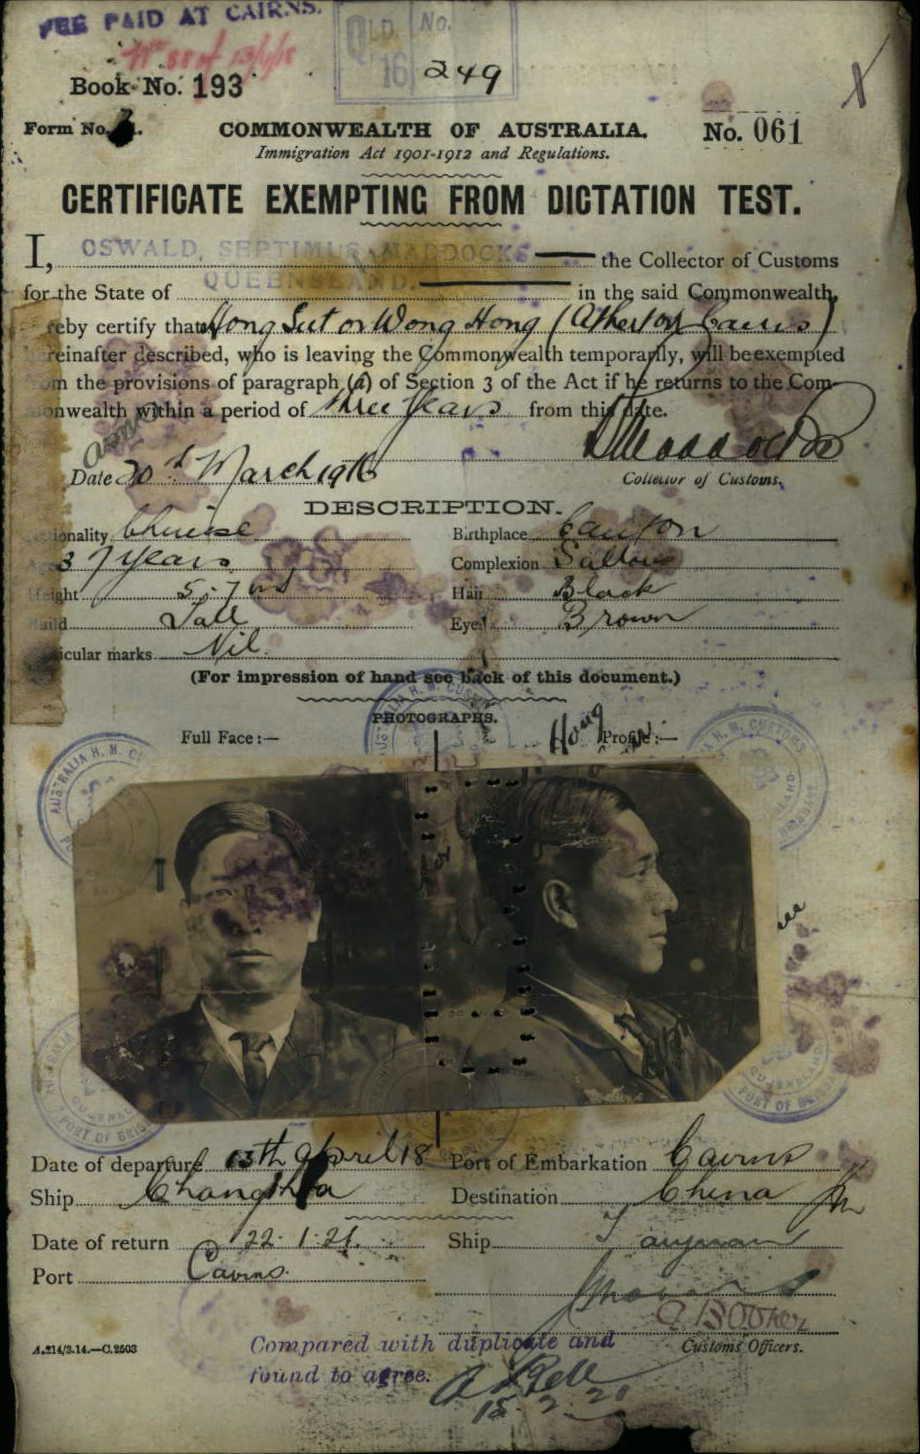 FEE PAID AT CAIRNS.
QLD. No.
16
249
Book No. 193
X
Form No.
COMMONWEALTH OF AUSTRALIA.
No. 061
Immigration Act 1901-1912 and Regulations.
CERTIFICATE EXEMPTING FROM DICTATION TEST.
I, OSWALD SEPTIMUS MADDOCKS the Collector of Customs
for the State of QUEENSLAND. in the said Commonwealth,
eby certify that Hong Sut or Wong Hong (Atherton Cairns)
reinafter described, who is leaving the Commonwealth temporarily, will be exempted
m the provisions of paragraph (a) of Section 3 of the Act if he returns to the Com-
onwealth within a period of three years from this date.
Date 20th March 1918
Collector of Customs.
DESCRIPTION.
ionality Chinese Birthplace Canton
37 years Complexion Sallow
Height 5. 7 Hair Black
uild Tall Eyes Brown
icular marks Nil.
(For impression of hand see back of this document.)
PHOTOGRAPHS.
Full Face:— Profile:—
Hong
AUSTRALIA H. M. CUSTOMS
PORT OF BRISBANE
QUEENSLAND
Date of departure 13th April 18 Port of Embarkation Cairns
Ship Changsha Destination China
Date of return 22. 1. 21. Ship Taiyuan
Port Cairns.
Customs Officers.
A.214/3.14.—C.2503
Compared with duplicate and
found to agree.
A Bell
15. 2. 21